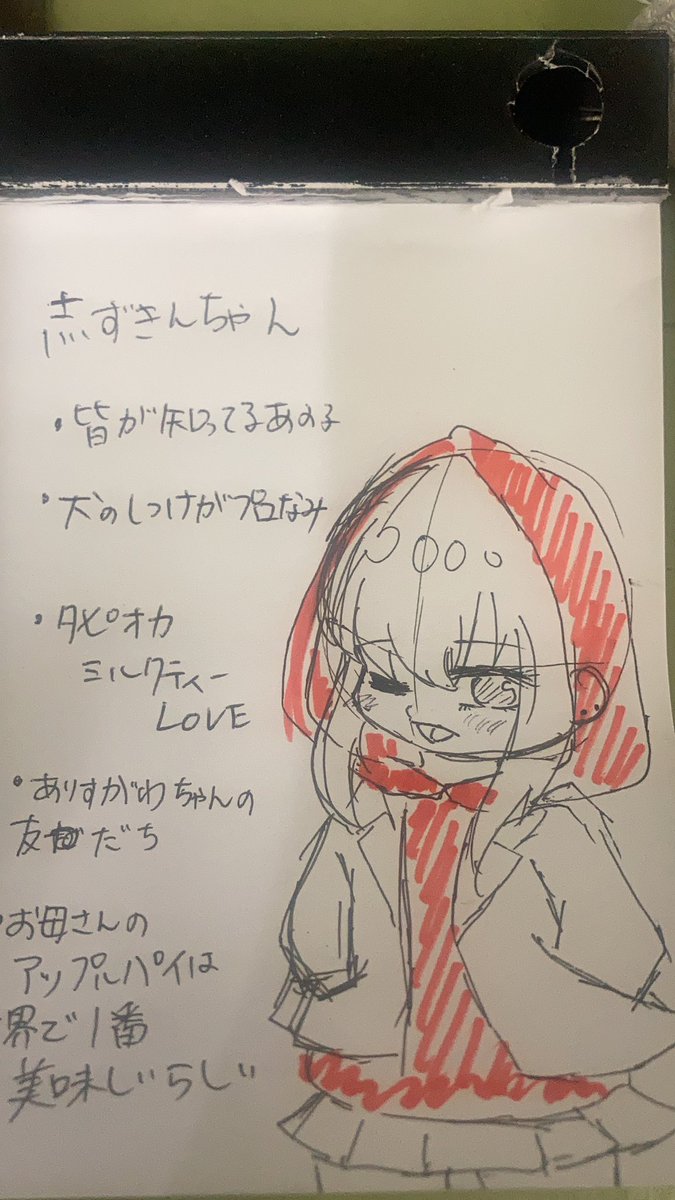 赤ずきんちゃん
・皆が知ってるあの子
・犬のしつけがプロなみ
・タピオカ
ミルクティー
LOVE
・ありすがわちゃんの
友だち
・お母さんの
アップルパイは
世界で1番
美味しいらしい